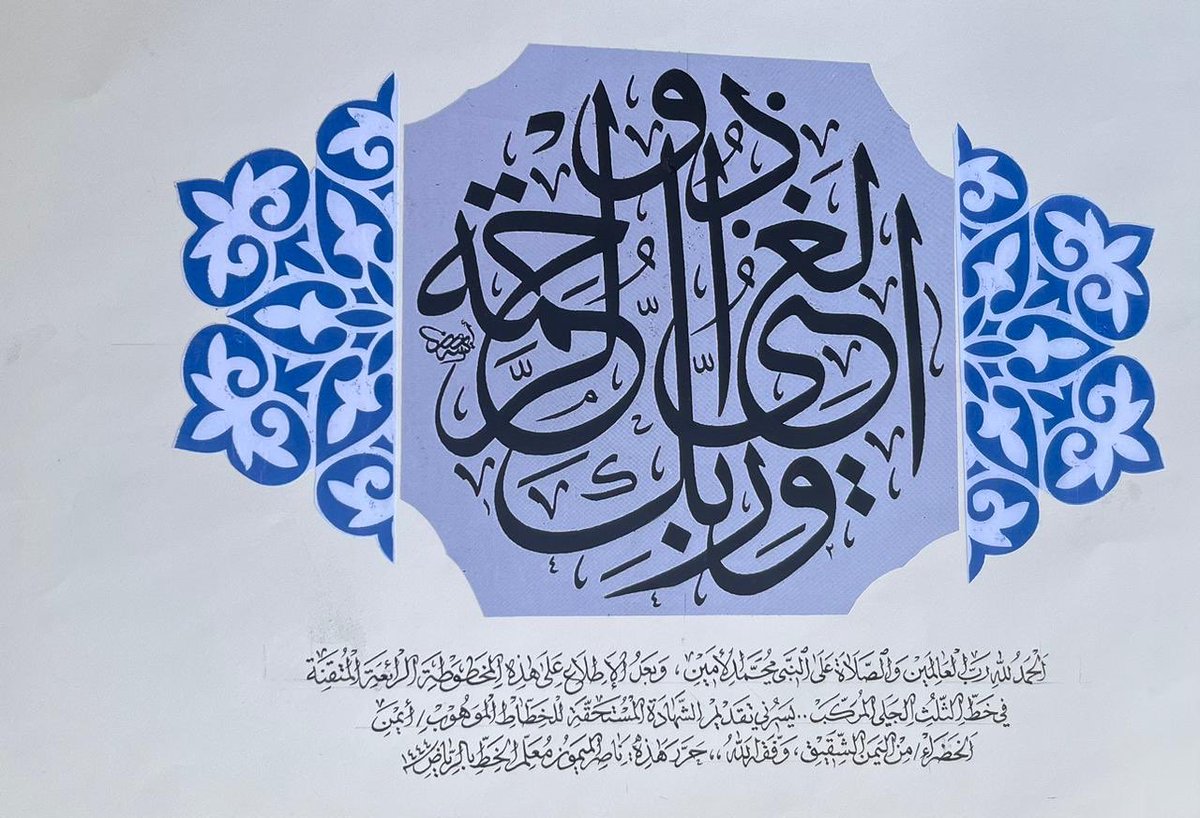 وربك الغني ذو الرحمة
الحمد لله رب العالمين والصلاة على النبي محمد الأمين، وبعد الإطلاع على هذه المخطوطة الرائعة المتقنة
في خط الثلث الجلي المركب .. يسرني تقديم الشهادة المستحقة للخطاط الموهوب / أيمن
الخضراء / من اليمن الشقيق، وفقه الله ،، حرر هذه: ناصر الميمون معلم الخط بالرياض